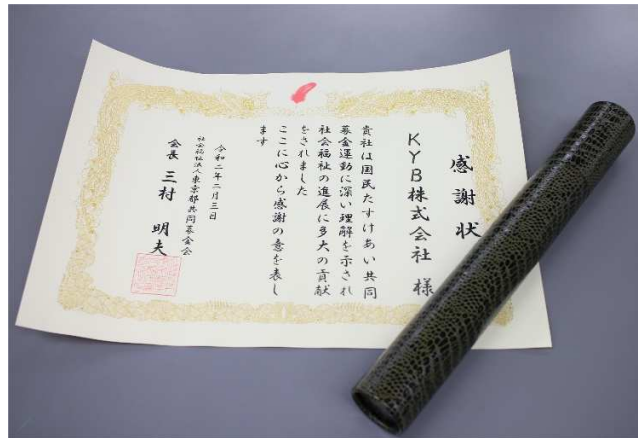 感謝状
KYB株式会社 様
貴社は国民たすけあい共同
募金運動に深い理解を示され
社会福祉の進展に多大の貢献
をされました
ここに心から感謝の意を表し
ます
令和二年二月三日
社会福祉法人東京都共同募金会
会長 三村 明夫